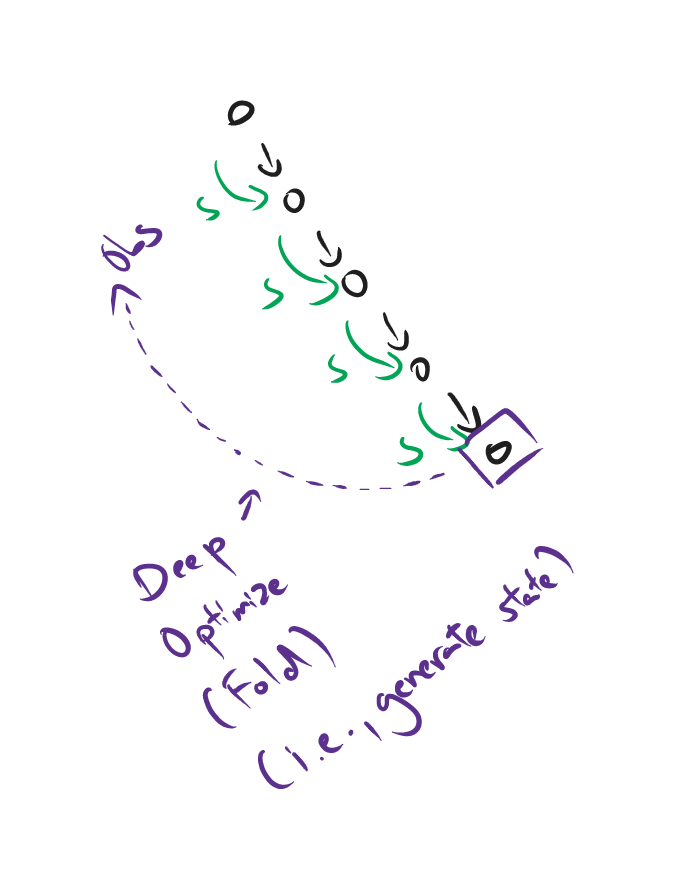 O
S
O
S
O
S
O
S
O
Obs
Deep
Optimize
(Fold)
(i.e., generate state)